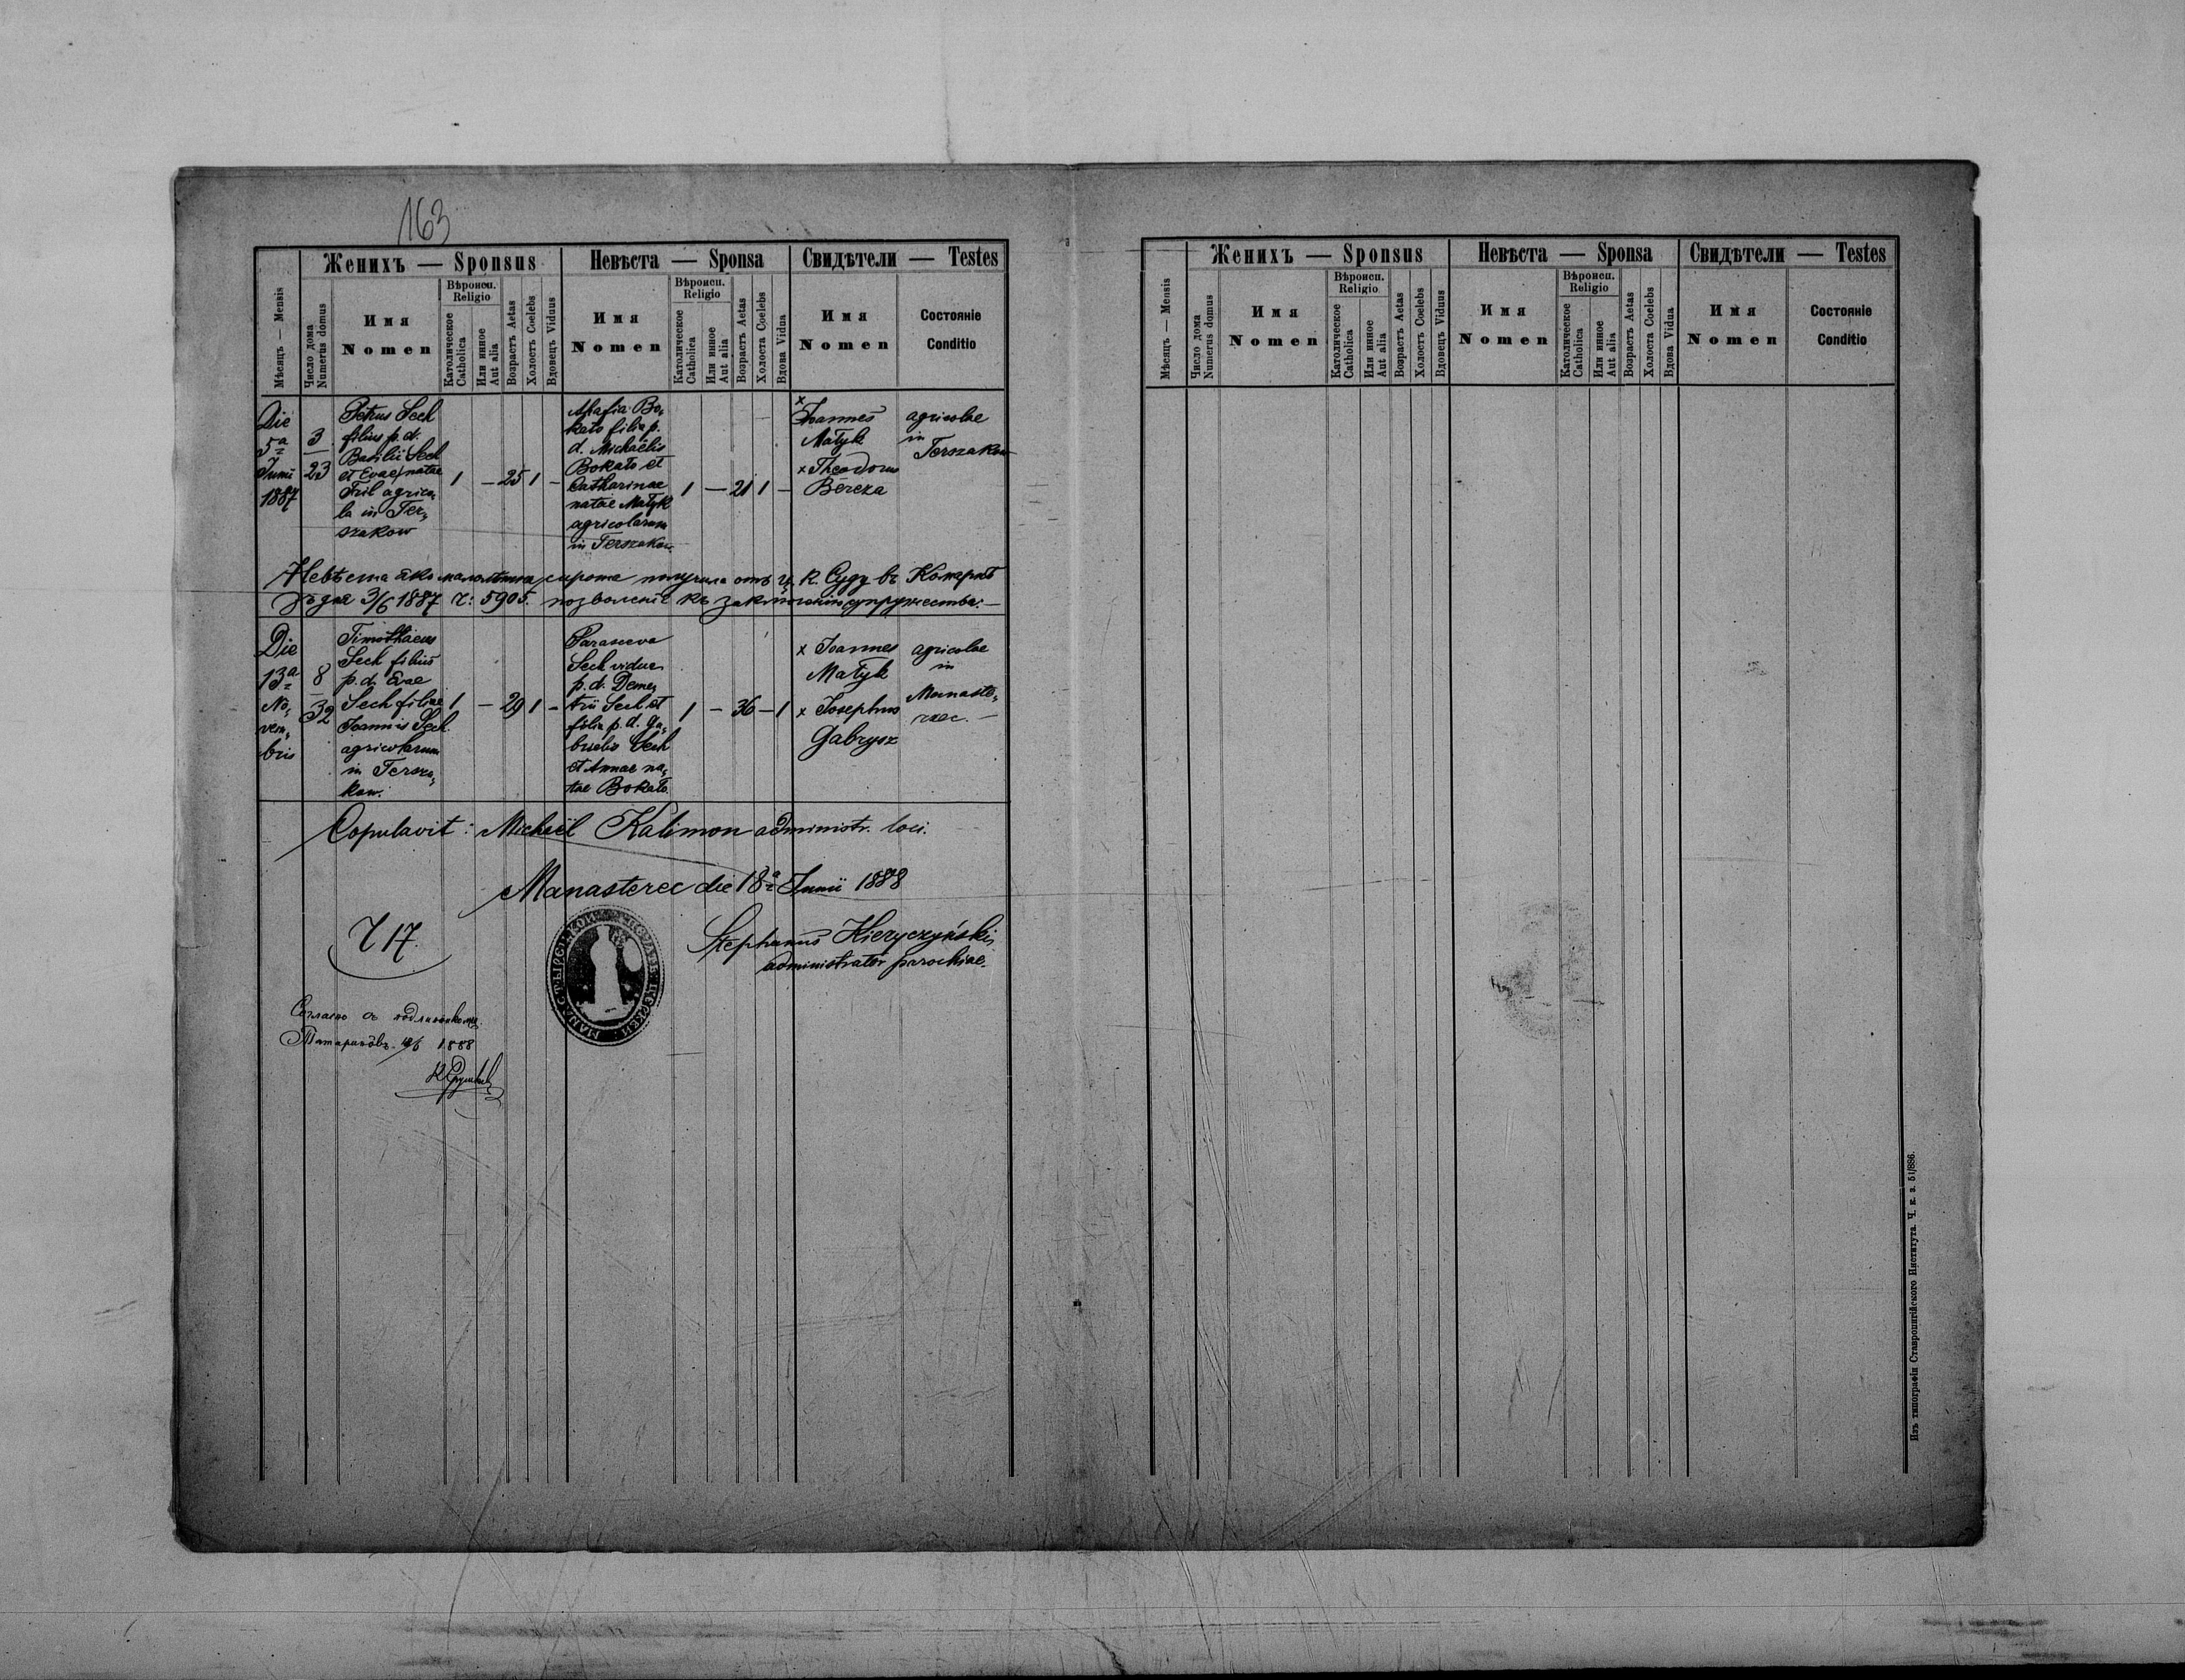 163
Женихъ — Sponsus
Невѣста — Sponsa
Свидѣтели — Testes
Мѣсяцъ — Mensis
Число дома
Numerus domus
Имя
Nomen
Вѣроисп.
Religio
Католическое
Catholica
Или инное
Aut alia
Возрастъ Aetas
Холостъ Coelebs
Вдовецъ Viduus
Имя
Nomen
Вѣроисп.
Religio
Католическое
Catholica
Или инное
Aut alia
Возрастъ Aetas
Холоста Coelebs
Вдова Vidua
Имя
Nomen
Состоянiе
Conditio
Die
5a
Junii
1887
3
23
Petrus Sech
filius p. d.
Basilii Sech
et Evae natae
Fril agrico,
la in Ter,
szakow
1 — 25 1 —
Ahafia Bo,
kato filia p.
d. Michaëlis
Bokato et
Catharinae
natae Matyk
agricolarum
in Terszakow
1 — 21 1 —
x Joannes
Matyk
x Theodorus
Bereza
agricolae
in
Terszakow
Невѣста яко малолѣтна сирота получила отъ ц. к. Суду въ Комарнѣ
зъ дня 3/6 1887 Ч: 5905. позволенiе къ заключенiю супружества. —
Die
13a
No,
vem,
bris
8
32
Timothaeus
Sech filius
p. d. Evae
Sech filiae
Joannis Sech
agricolarum
in Tersza,
kow.
1 — 29 1 —
Parasceva
Sech vidua
p. d. Deme,
trii Sech et
filia p. d. Ga,
brielis Sech
et Annae na,
tae Bokato.
1 — 36 — 1
x Joannes
Matyk
x Josephus
Gabrysz
agricolae
in
Manaste,
rzec. —
Copulavit: Michaël Kalimon administr. loci.
Manasterec die 18a Junii 1888
Ч 17.
Stephanus Kieryczyński,
administrator parochiae.
Согласно съ подлинникомъ
1888
Женихъ — Sponsus
Невѣста — Sponsa
Свидѣтели — Testes
Мѣсяцъ — Mensis
Число дома
Numerus domus
Имя
Nomen
Вѣроисп.
Religio
Католическое
Catholica
Или инное
Aut alia
Возрастъ Aetas
Холостъ Coelebs
Вдовецъ Viduus
Имя
Nomen
Вѣроисп.
Religio
Католическое
Catholica
Или инное
Aut alia
Возрастъ Aetas
Холоста Coelebs
Вдова Vidua
Имя
Nomen
Состоянiе
Conditio
Изъ типографiи Ставропигiйского Института. Ч. к. з. 51/886.